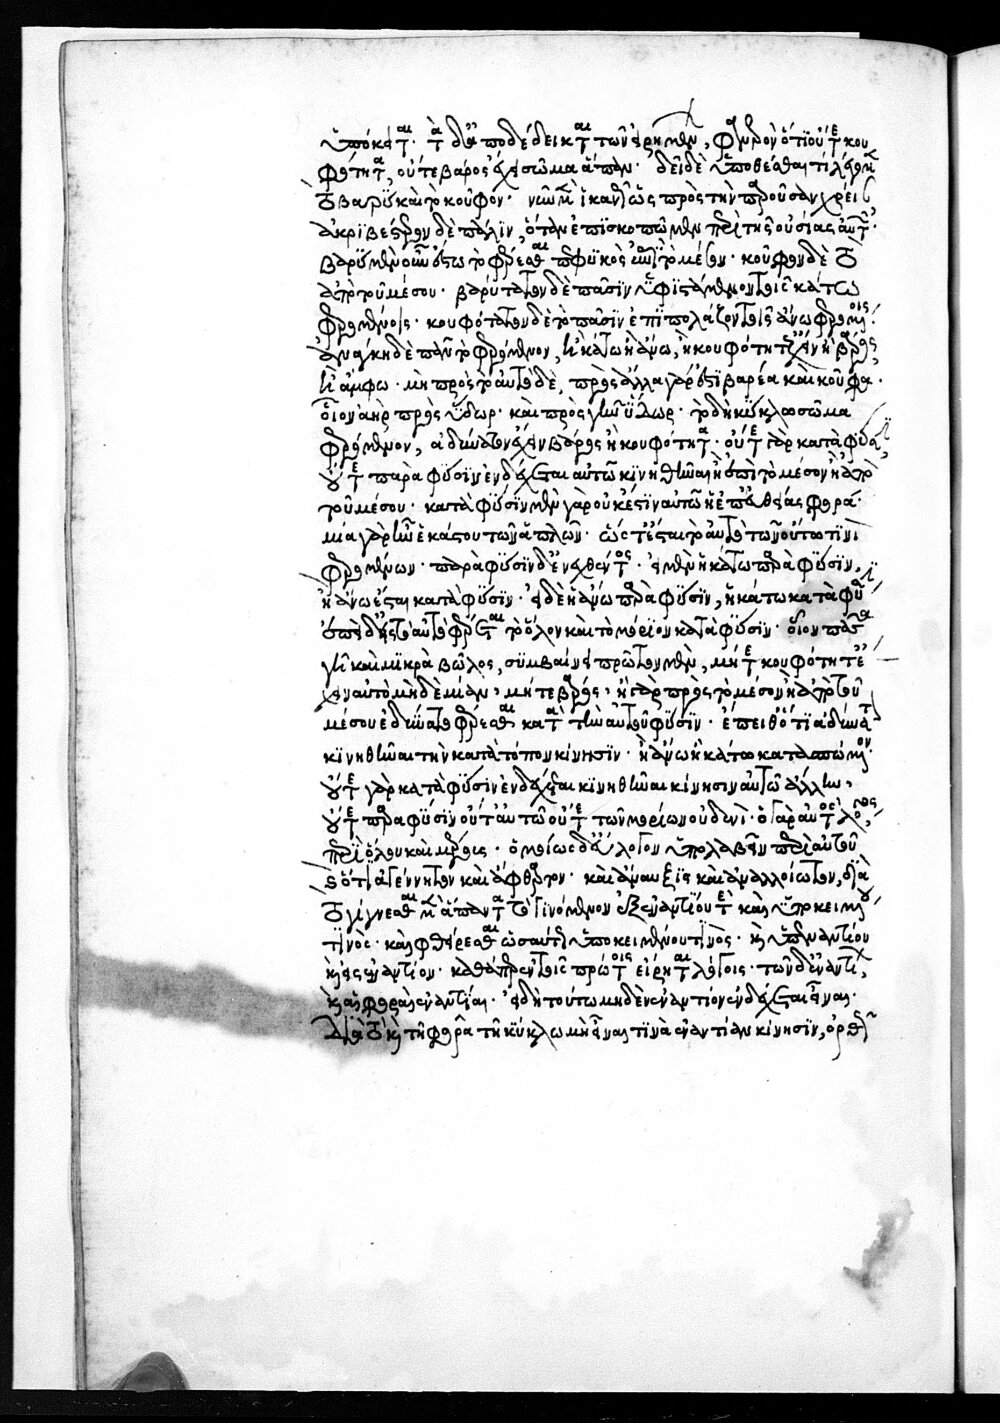 ὑπόκειται· τὰ δ' ἀποδέδεικται τῶν εἰρημένων, φανερὸν ὅτι οὔτε κου
φότητα, οὔτε βάρος ἔχει σῶμα ἅπαν· δεῖ δὲ ὑποθέσθαι τί λέγομεν
τὸ βαρὺ καὶ τὸ κοῦφον· νῦν μὲν ἱκανῶς ὡς πρὸς τὴν παροῦσαν χρείαν
ἀκριβέστερον δὲ πάλιν, ὅταν ἐπισκοπῶμεν περὶ τῆς οὐσίας αὐτῶν·
βαρὺ μὲν οὖν ἔστω τὸ φέρεσθαι πεφυκὸς ἐπὶ τὸ μέσον· κοῦφον δὲ τὸ
ἀπὸ τοῦ μέσου· βαρύτατον δὲ πᾶσιν ὑφιστάμενον τοῖς κάτω
φερομένοις· κουφότατον δὲ τὸ πᾶσιν ἐπιπολάζον τοῖς ἄνω φερομένοις·
ἀνάγκη δὲ πᾶν τὸ φερόμενον, ἢ κάτω ἢ ἄνω, ἢ κουφότητ' ἔχειν ἢ βάρος
ἢ ἄμφω· μὴ πρὸς τὸ αὐτὸ δέ, πρὸς ἄλλα γάρ ἐστι βαρέα καὶ κοῦφα·
οἷον ἀὴρ πρὸς ὕδωρ· καὶ πρὸς γῆν ὕδωρ· τὸ δὴ κύκλω σῶμα
φερόμενον, ἀδύνατον ἔχειν βάρος ἢ κουφότητα· οὔτε γὰρ κατὰ φύσιν
οὔτε παρὰ φύσιν ἐνδέχεται αὐτῶ κινηθῆναι ἢ ἐπὶ τὸ μέσον ἢ ἀπὸ
τοῦ μέσου· κατὰ φύσιν μὲν γὰρ οὐκ ἔστιν αὐτῶ ἡ ἐπ' εὐθείας φορά·
μία γὰρ ἦν ἑκάστου τῶν ἁπλῶν· ὥστ' ἔσται τὸ αὐτὸ τῶν οὕτω τινὶ
φερομένων· παρὰ φύσιν δ' ἐνεχθέντος· εἰ μὲν ἡ κάτω παρὰ φύσιν,
ἡ ἄνω ἔσται κατὰ φύσιν· εἰ δὲ ἡ ἄνω παρὰ φύσιν, ἡ κάτω κατὰ φύσιν
τὸ ὅλον καὶ τὸ μόριον κατὰ φύσιν· οἷον πᾶσα
γῆ καὶ μικρὰ βῶλος, συμβαίνει πρῶτον μὲν, μήτε κουφότητ' ἔ
χειν αὐτὸ μηδεμίαν, μήτε βάρος· ἢ γὰρ πρὸς τὸ μέσον ἢ ἀπὸ τοῦ
μέσου ἐδύνατο φέρεσθαι κατὰ τὴν αὐτοῦ φύσιν· ἔπειθ' ὅτι ἀδύνατον
κινηθῆναι τὴν κατὰ τόπον κίνησιν· ἢ ἄνω ἢ κάτω κατασπώμενον·
οὔτε γὰρ κατὰ φύσιν ἐνδέχεται κινηθῆναι κίνησιν αὐτῶ ἄλλην,
οὔτε παρὰ φύσιν οὔτ' αὐτῶ οὔτε τῶν μορίων οὐδενί· ὁ γὰρ αὐτὸς λόγος
περὶ ὅλου καὶ μέρους· ὁμοίως δ' εὔλογον ὑπολαβεῖν περὶ αὐτοῦ
ὅτι ἀγέννητον καὶ ἄφθαρτον· καὶ ἀναυξὲς καὶ ἀναλλοίωτον, διὰ
τὸ γίγνεσθαι μὲν ἅπαν τὸ γινόμενον ἐξ ἐναντίου τε καὶ ὑποκειμένου
τινός· καὶ φθείρεσθαι ὡσαύτως ὑποκειμένου τινός· καὶ ὑπ' ἐναντίου
καὶ εἰς ἐναντίον· καθάπερ ἐν τοῖς πρώτοις εἴρηται λόγοις· τῶν δ' ἐναντίων
καὶ αἱ φοραὶ ἐναντίαι· εἰ δὴ τούτω μηδὲν ἐναντίον ἐνδέχεται εἶναι·
διὰ τὸ καὶ τῆ φορᾶ τῆ κύκλω μὴ εἶναι τινὰ ἐναντίαν κίνησιν, ὀρθῶς